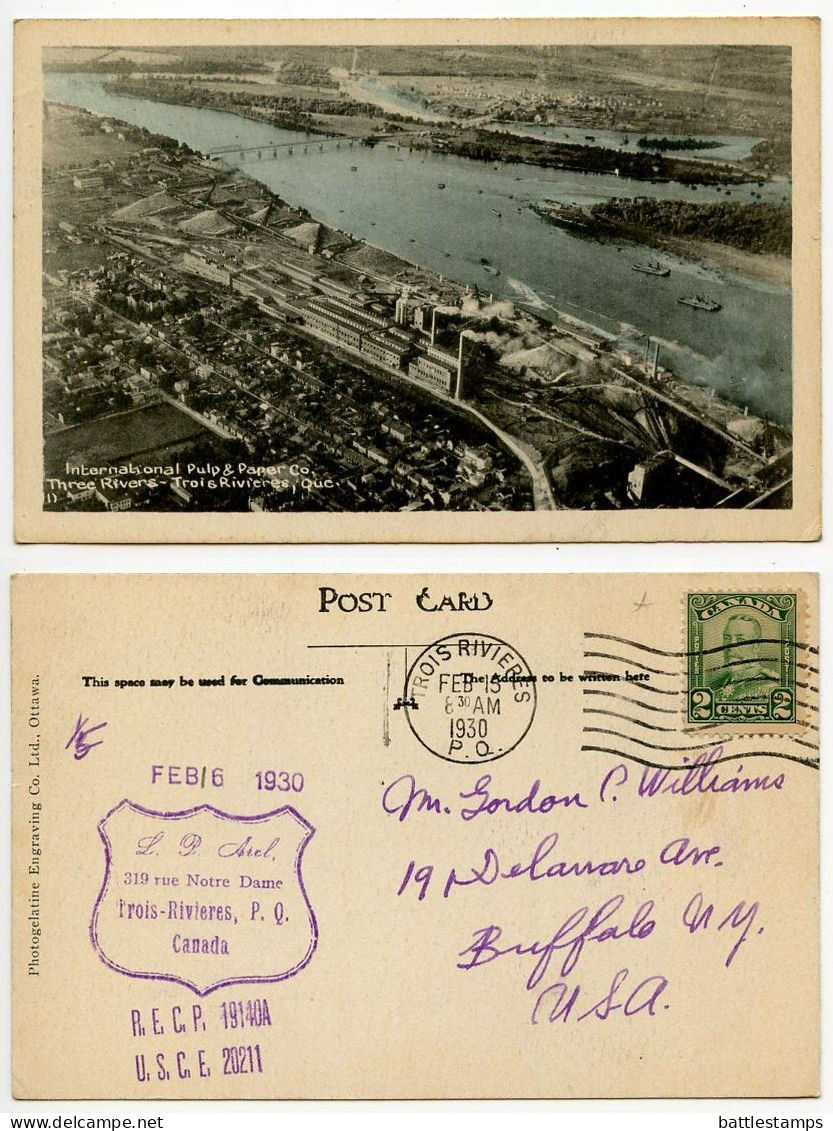 International Pulp & Paper Co.
Three Rivers - Trois Rivieres, Que.
11
POST CARD
This space may be used for Communication
The Address to be written here
TROIS RIVIERES
FEB 15
8 30 AM
1930
P. Q.
CANADA
POSTES POST
2 CENTS 2
1/5
FEB 16 1930
L. P. Arel,
319 rue Notre Dame
Trois-Rivieres, P. Q.
Canada
R. E. C. P. 19140A
U. S. C. E. 20211
Mr. Gordon P. Williams
191 Delaware Ave.
Buffalo N.Y.
USA.
Photogelatine Engraving Co. Ltd., Ottawa.
battlestamps